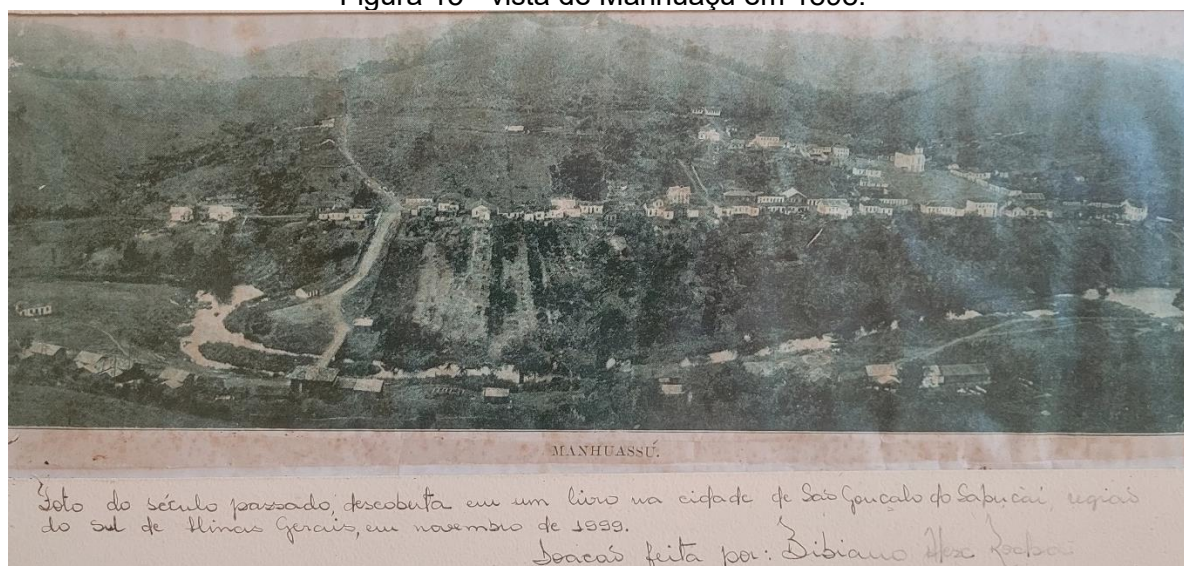 MANHUASSÚ.
Foto do século passado, descoberta em um livro na cidade de São Gonçalo do Sapucaí, região
do sul de Minas Gerais, em novembro de 1999.
Doação feita por: Bibiano